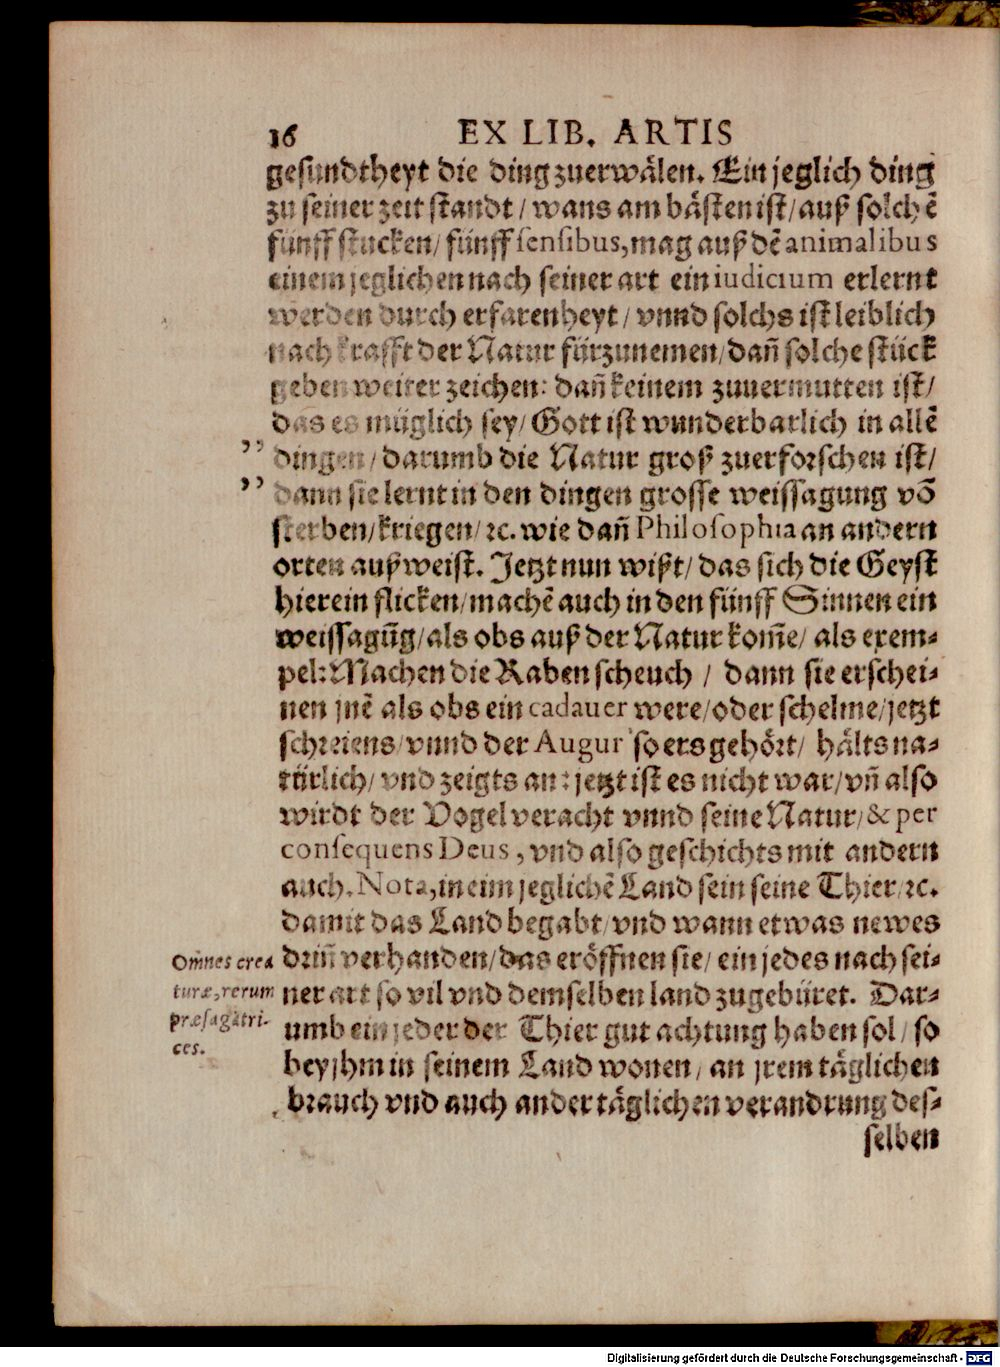 16 EX LIB. ARTIS
gesundtheyt die ding zuerwälen. Ein jeglich ding
zu seiner zeit standt / wans am bästen ist/ auß solchẽ
fünff stucken/ fünff sensibus, mag auß dẽ animalibus
einem jeglichen nach seiner art ein iudicium erlernt
werden durch erfarenheyt / vnnd solchs ist leiblich
nach krafft der Natur fürzunemen/ dañ solche stück
geben weiter zeichen: dañ keinem zuuermutten ist/
das es müglich sey/ Gott ist wunderbarlich in allẽ
" dingen / darumb die Natur groß zuerforschen ist/
" dann sie lernt in den dingen grosse weissagung võ
sterben/ kriegen/ ꝛc. wie dañ Philosophia an andern
orten außweist. Jetzt nun wißt/ das sich die Geyst
hierein flicken/ machẽ auch in den fünff Sinnen ein
weissagũg/ als obs auß der Natur kom̃e/ als exem-
pel: Machen die Raben scheuch / dann sie erschei-
nen jnẽ als obs ein cadauer were/ oder schelme/ jetzt
schreiens/ vnnd der Augur so ers gehört/ hälts na-
türlich/ vnd zeigts an: jetzt ist es nicht war/ vñ also
wirdt der Vogel veracht vnnd seine Natur/ & per
consequens Deus, vnd also geschichts mit andern
auch. Nota, in eim jeglichẽ Land sein seine Thier/ ꝛc.
damit das Land begabt/ vnd wann etwas newes
driñ verhanden/ das eröffnen sie/ ein jedes nach sei-
ner art so vil vnd demselben land zugebüret. Dar-
umb ein jeder der Thier gut achtung haben sol/ so
bey jhm in seinem Land wonen/ an jrem täglichen
brauch vnd auch ander täglichen verandrung des-
selben
Om̃nes crea
turæ, rerum
præsagatri-
ces.
Digitalisierung gefördert durch die Deutsche Forschungsgemeinschaft - DFG